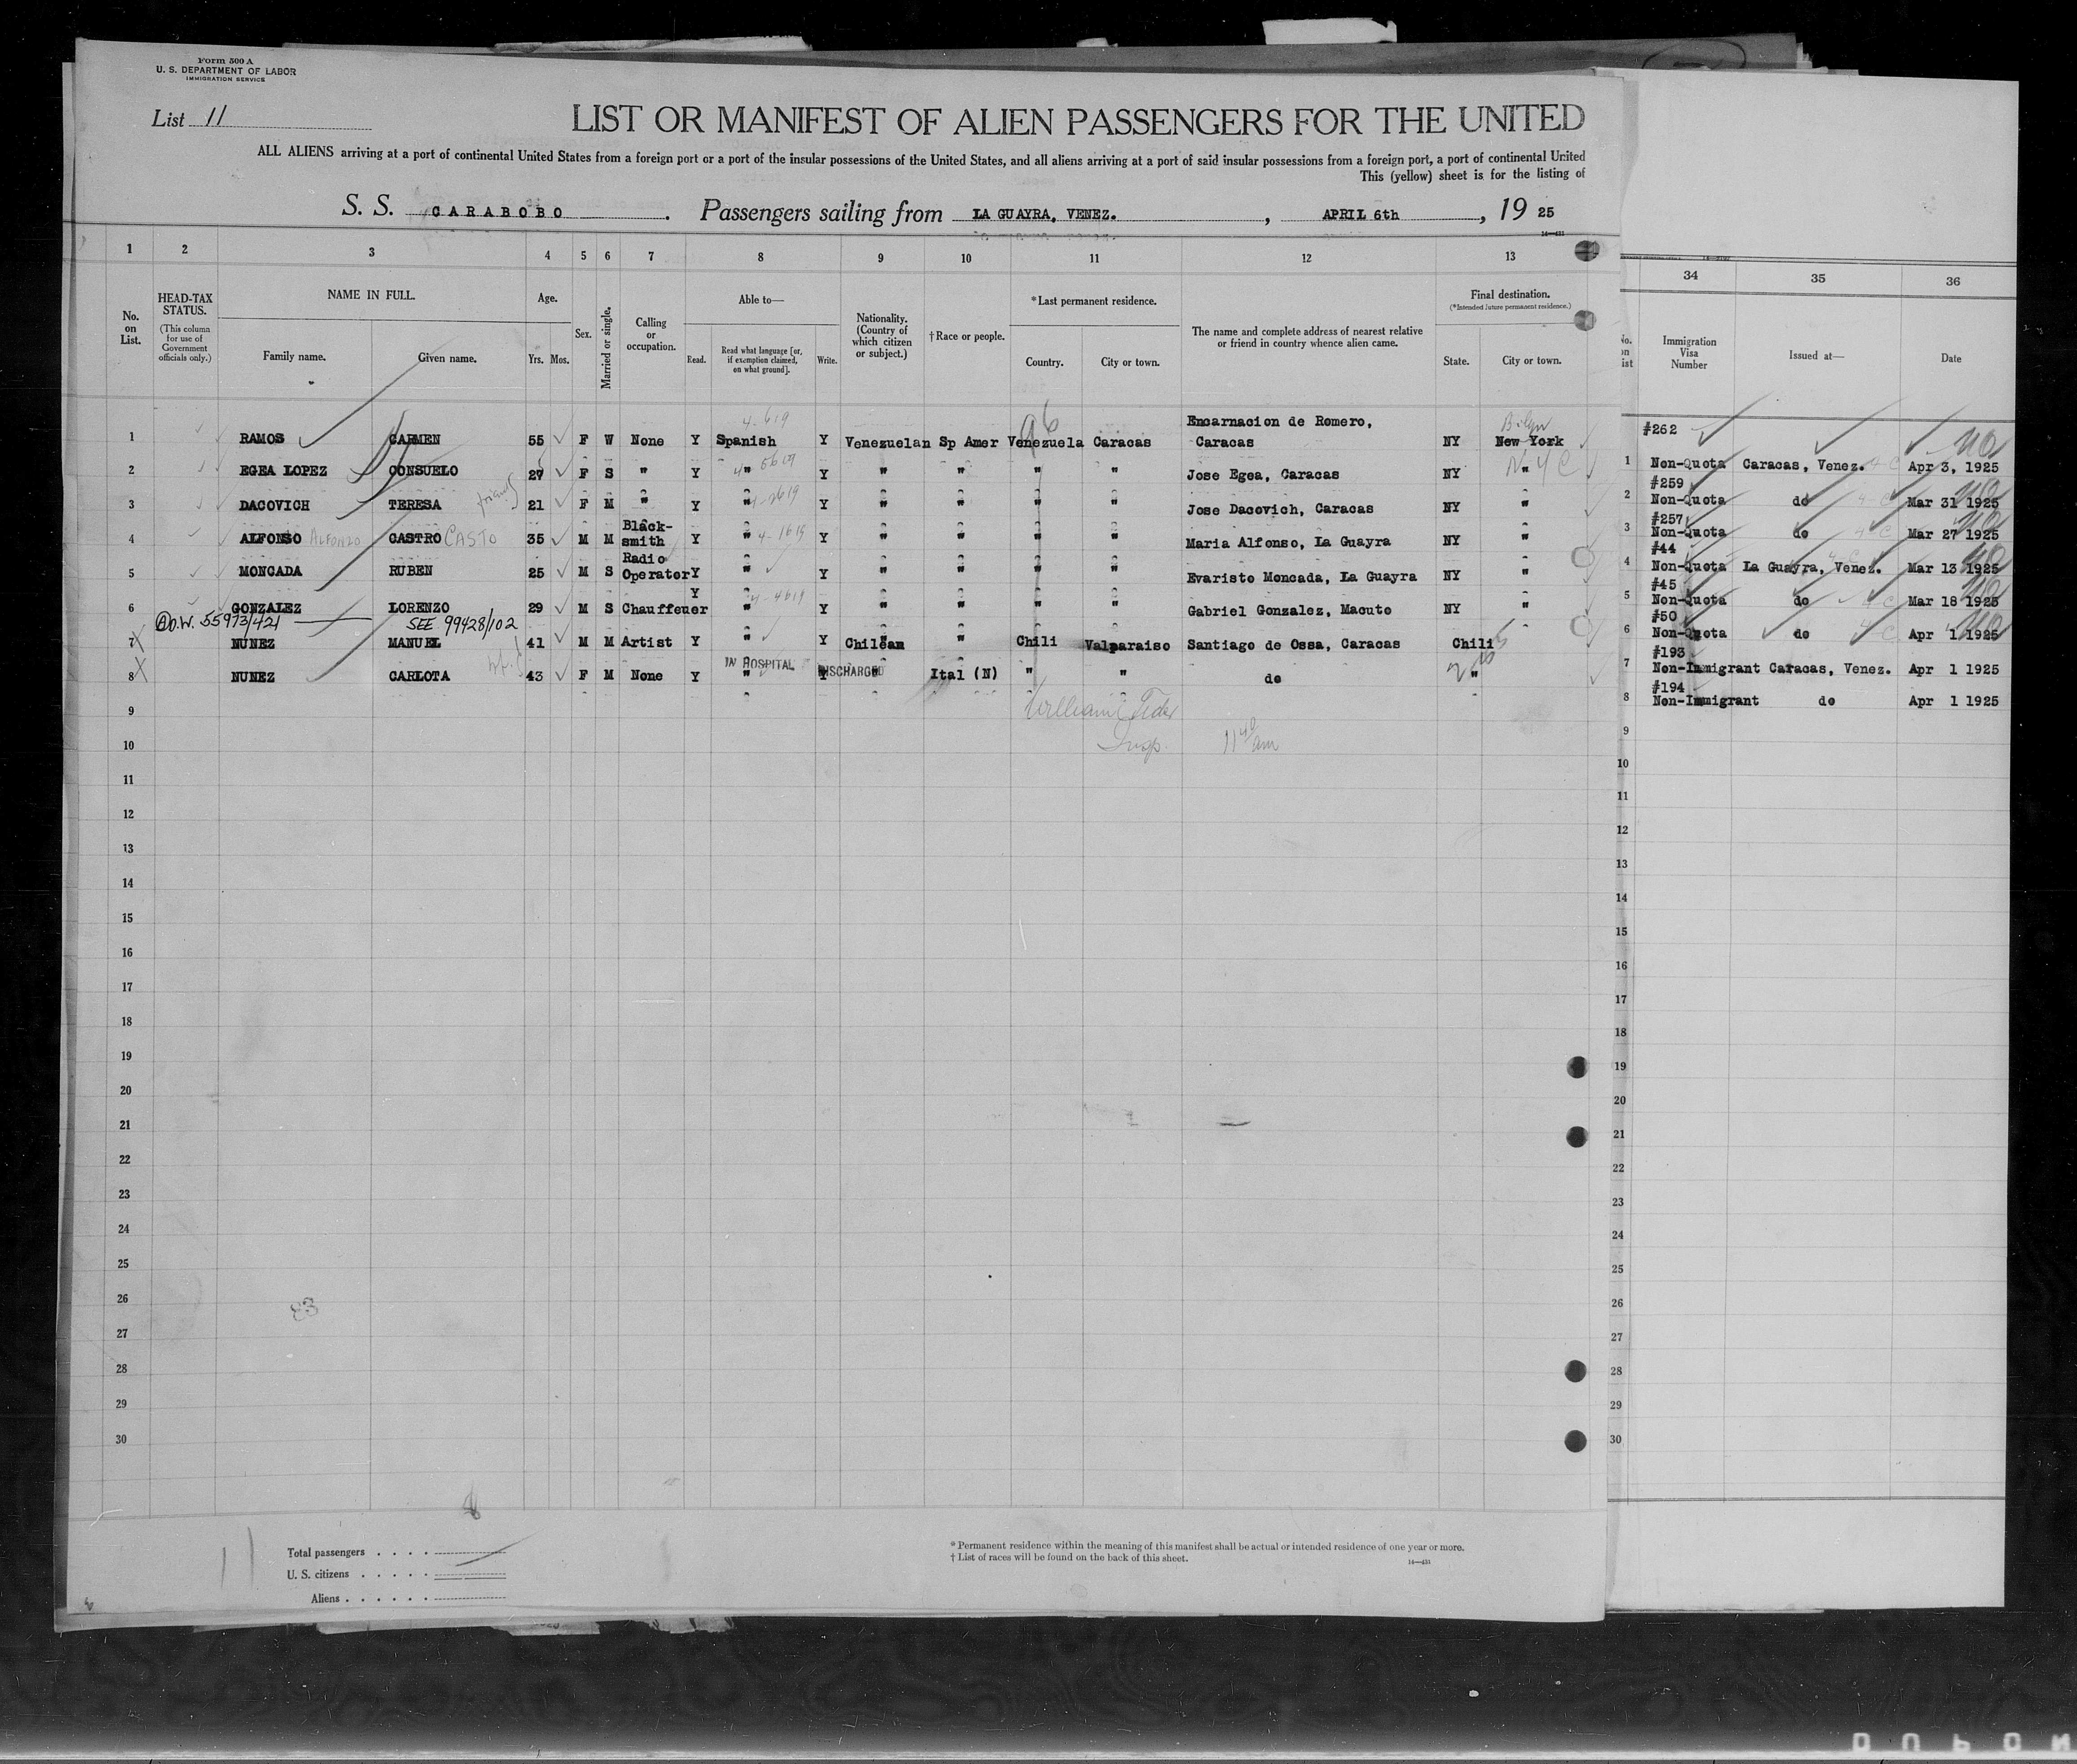 Form 500 A
U. S. DEPARTMENT OF LABOR
IMMIGRATION SERVICE
List 11
LIST OR MANIFEST OF ALIEN PASSENGERS FOR THE UNITED
ALL ALIENS arriving at a port of continental United States from a foreign port or a port of the insular possessions of the United States, and all aliens arriving at a port of said insular possessions from a foreign port, a port of continental United
This (yellow) sheet is for the listing of
S. S. CARABOBO . Passengers sailing from LA GUAYRA, VENEZ. , APRIL 6th , 19 25
14—431
1 2 3 4 5 6 7 8 9 10 11 12 13 34 35 36
No. on List.
HEAD-TAX STATUS.
(This column for use of Government officials only.)
NAME IN FULL.
Family name. Given name.
Age.
Yrs. Mos.
Sex.
Married or single.
Calling or occupation.
Able to—
Read. Read what language [or, if exemption claimed, on what ground]. Write.
Nationality. (Country of which citizen or subject.)
†Race or people.
*Last permanent residence.
Country. City or town.
The name and complete address of nearest relative or friend in country whence alien came.
Final destination.
(*Intended future permanent residence.)
State. City or town.
No. on List
Immigration Visa Number
Issued at—
Date
1 RAMOS CARMEN 55 F W None Y Spanish Y Venezuelan Sp Amer Venezuela Caracas Encarnacion de Romero, Caracas NY New York
2 EGEA LOPEZ CONSUELO 27 F S " Y " Y " " " " Jose Egea, Caracas NY " N Y C
3 DACOVICH TERESA friend 21 F M " Y " Y " " " " Jose Dacovich, Caracas NY "
4 ALFONSO ALFONZO CASTRO CASTO 35 M M Black-smith Y " Y " " " " Maria Alfonso, La Guayra NY "
5 MONCADA RUBEN 25 M S Radio Operator Y " Y " " " " Evaristo Moncada, La Guayra NY "
6 GONZALEZ LORENZO 29 M S Chauffeuer Y " Y " " " " Gabriel Gonzalez, Macuto NY "
D.W. 55973/421 SEE 99428/102
7 NUNEZ MANUEL 41 M M Artist Y " Y Chilean " Chili Valparaiso Santiago de Ossa, Caracas Chili
8 NUNEZ CARLOTA 43 F M None Y " Y " Ital (N) " " do "
IN HOSPITAL DISCHARGED
96
9
William C Feder
10
Insp. 11 40 am
11
12
13
14
15
16
17
18
19
20
21
22
23
24
25
26
27
28
29
30
83
1 #262 Non-Quota Caracas, Venez. Apr 3, 1925
2 #259 Non-Quota do Mar 31 1925
3 #257 Non-Quota do Mar 27 1925
4 #44 Non-Quota La Guayra, Venez. Mar 13 1925
5 #45 Non-Quota do Mar 18 1925
6 #50 Non-Quota do Apr 1 1925
7 #193 Non-Immigrant Caracas, Venez. Apr 1 1925
8 #194 Non-Immigrant do Apr 1 1925
9
10
11
12
13
14
15
16
17
18
19
20
21
22
23
24
25
26
27
28
29
30
11
Total passengers . . . .
U. S. citizens . . . . .
Aliens . . . . . .
* Permanent residence within the meaning of this manifest shall be actual or intended residence of one year or more.
† List of races will be found on the back of this sheet.
14—431